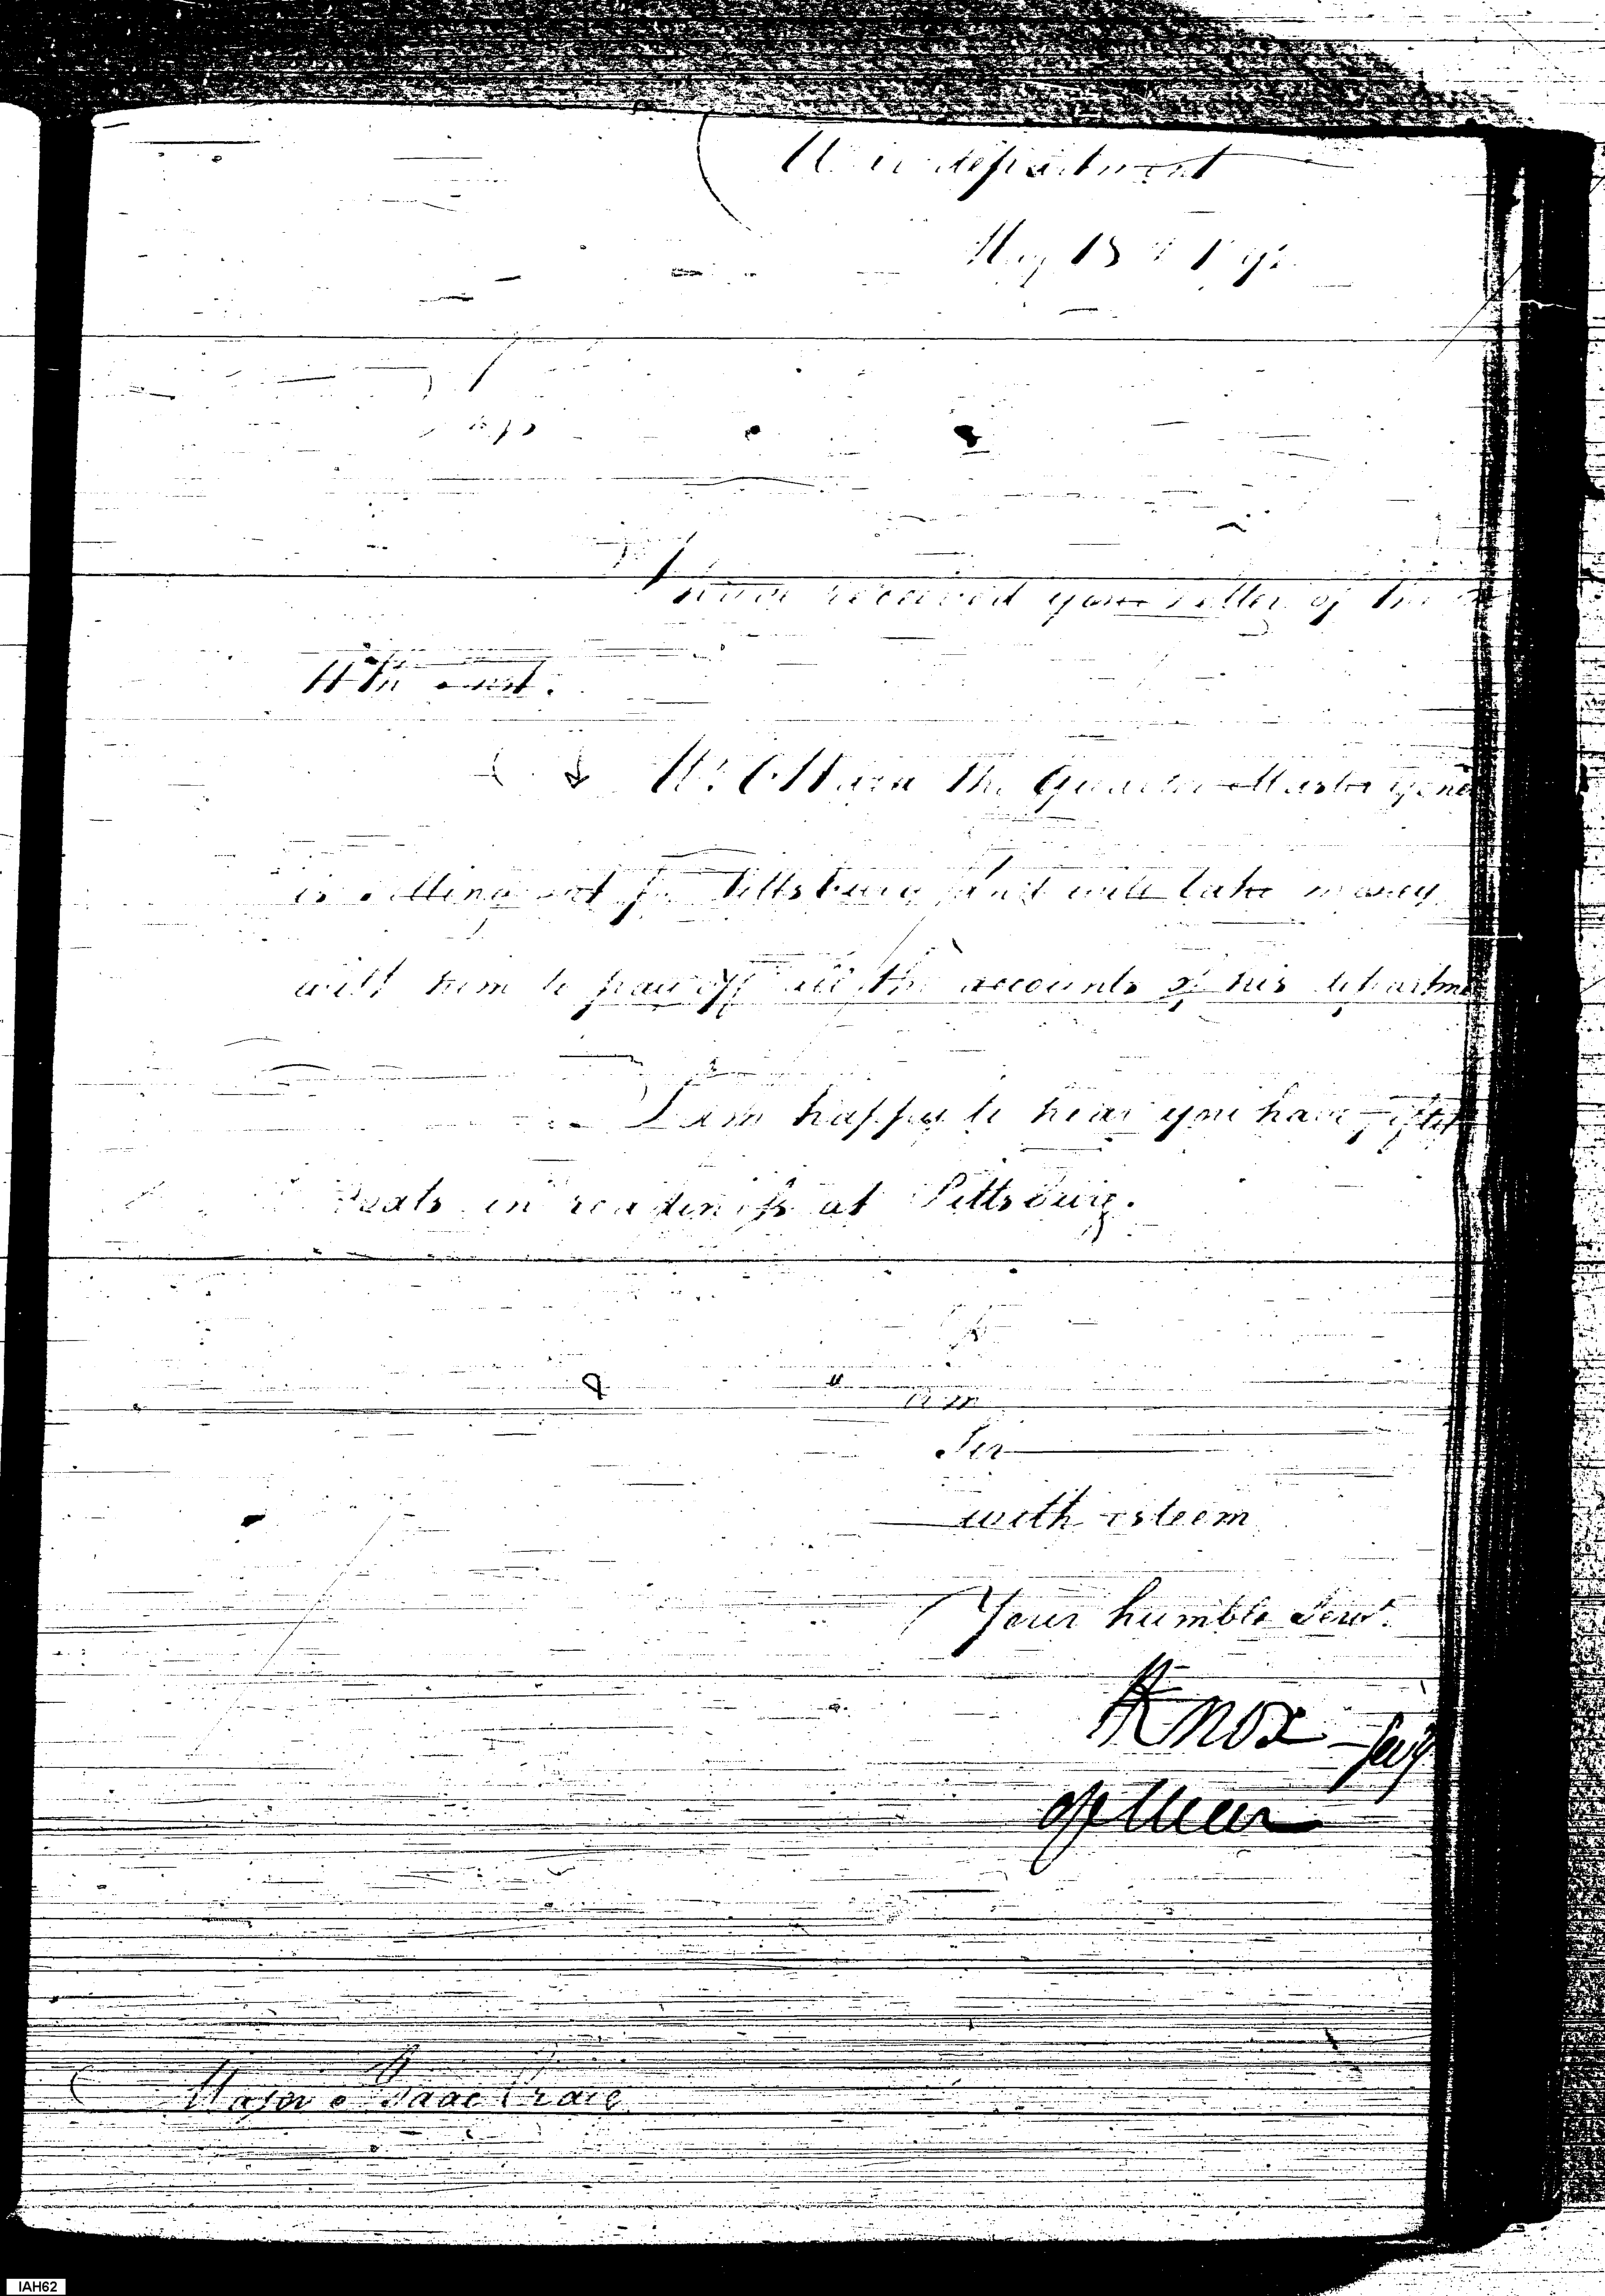 War department
May 18th 1792
Sir
I have received your letter of the
11th inst.
Mr. O Hara the Quarter Master Gene
is setting out for Pittsburg and will take money
with him to pay off all the accounts of his departme
I am happy to hear you have fifteen
Boats in readiness at Pittsburg.
am
Sir
with esteem
Your humble Servt.
HKnox Secy
of War
Major Isaac Craig
IAH62